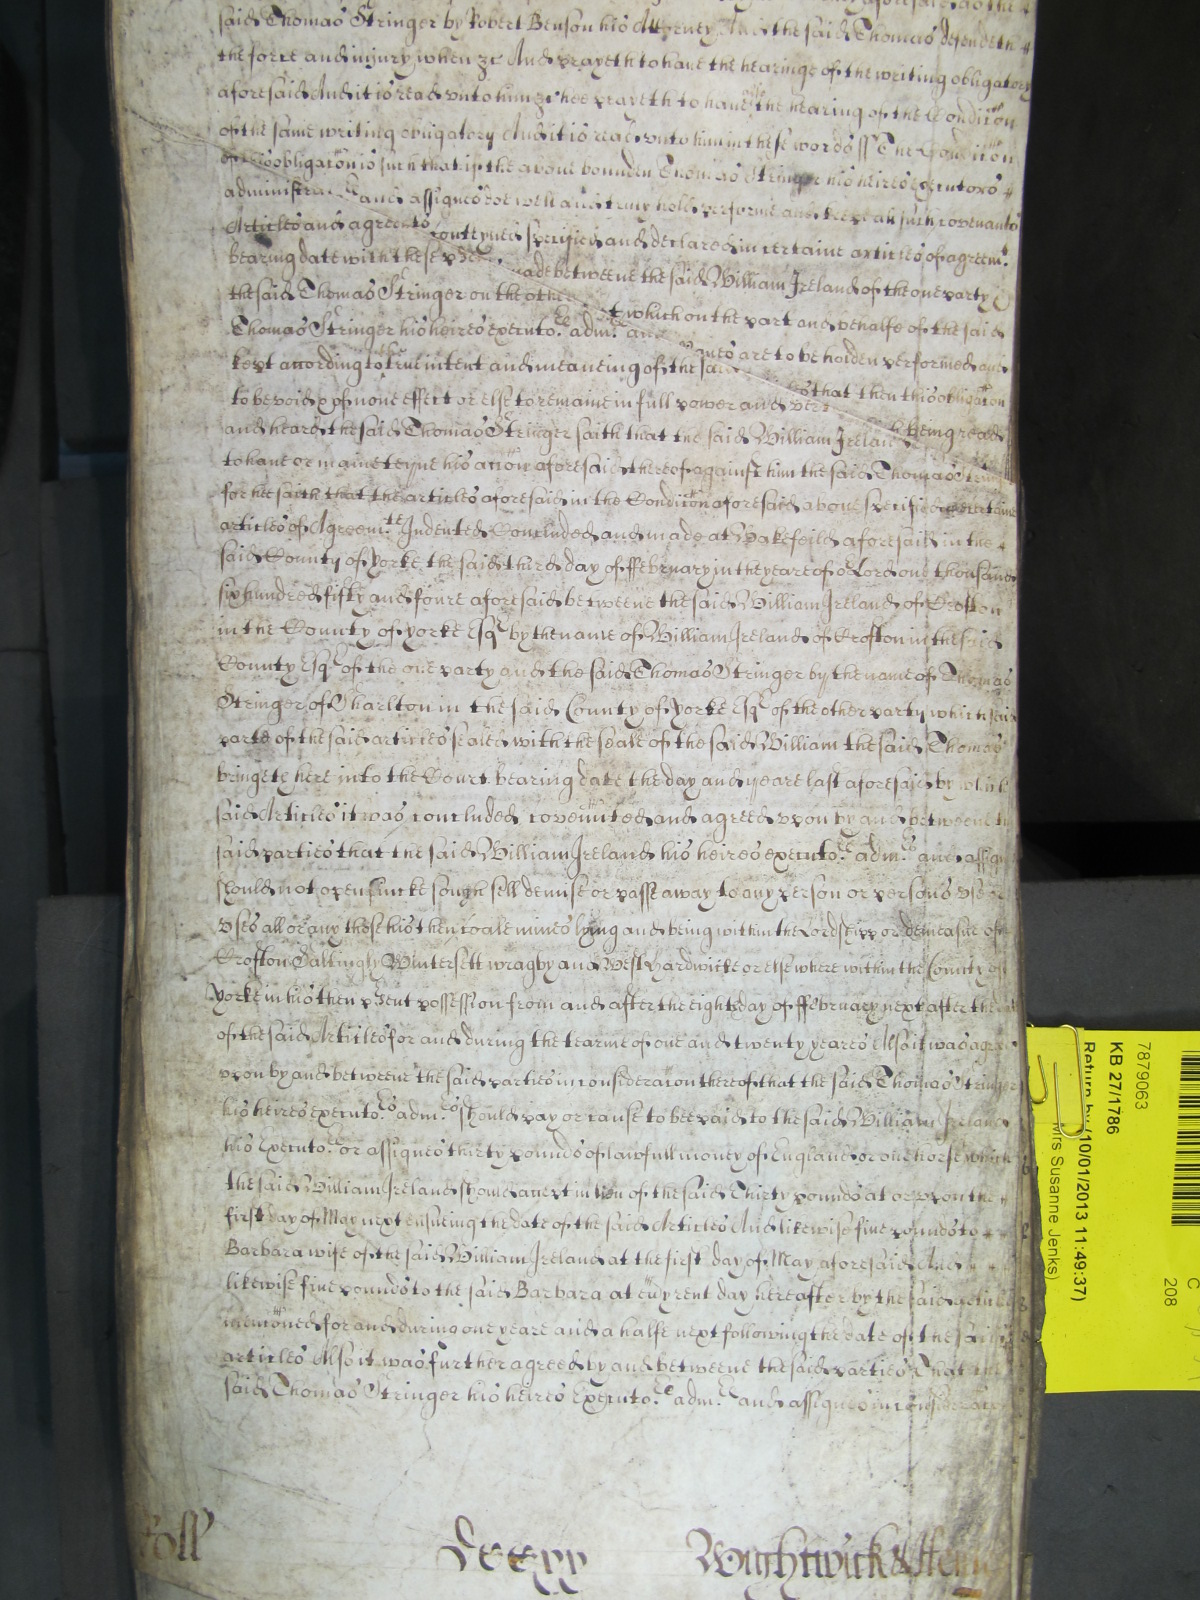 said Thomas Stringer by Robert Benson his Attorney And the said Thomas defendeth
the force and injury when &c And prayeth to have the hearinge of the writing obligatory
aforesaid And it is read unto him &c hee prayeth to have the hearing of the Condicon
of the same writing obligatory And it is read unto him in these words ss The Condicon
obligacon is such that if the above bounden Thomas Stringer his heires executors
and assignes doe well and truly hold performe and keepe all such covenants
Articles and agreemts conteyned specified and declared in certaine articles of agreemt
bearing date with these made betweene the said William Ireland of the one party
the said Thomas Stringer on the other which on the part and behalfe of the said
Thomas Stringer his heires executors adm are to be holden performed and
kept according to the true intent and meaneing of the that then this obligacon
to be void & of none effect or else to remaine in full power and being read
and heard the said Thomas Stringer saith that the said William Ireland
to have or mainteyne his accon aforesaid thereof against him the said Thomas
for hee saith that the articles aforesaid in the Condicon aforesaid above specified certaine
articles of Agreemts Indented Concluded and made at Wakefeild aforesaid in the
said County of Yorke the said third day of ffebruary in the yeare of or Lord one thousand
six hundred fifty and foure aforesaid betweene the said William Ireland of Crofton
in the County of Yorke Esqr by the name of William Ireland of Crofton in the said
County Esqr of the one party and the said Thomas Stringer by the name of Thomas
Stringer of Sharlton in the said County of Yorke Esqr of the other party which
parte of the said articles sealed with the seale of the said William the said Thomas
bringeth here into the Court bearing date the day and yeare last aforesaid by which
said Articles it was concluded covennted and agreed upon by and betweene
said parties that the said William Ireland his heires executors adm and
should not open sincke sough sell demise or passe away to any person or persons use or
uses all or any those his then coale mines lying and being within the Lordshipp or demeasne of
Crofton Wintersett wragby and West hardwicke or elsewhere within the County of
Yorke in his then psent possession from and after the eight day of ffebruary next after the
of the said Articles for and during the tearme of one and twenty yeares Also it was
upon by and betweene the said parties in consideracon thereof that the said Thomas Stringer
his heires executors adm should pay or cause to bee paid to the said William Ireland
his Executors or assignes thirty pounds of lawfull money of England or one horse which
the said William Ireland should accept in lieu of the said Thirty pounds at or upon the
first day of May next ensueing the date of the said Articles And likewise five pounds to
Barbara wife of the said William Ireland at the first day of May aforesaid And
likewise five pounds to the said Barbara at every rent day hereafter by the said
mencioned for and during one yeare and a halfe next following the date of the said
articles Also it was further agreed by and betweene the said parties That
said Thomas Stringer his heires Executors adm and assignes in
Roll
Wightwick &
7879063
KB 27/1786
Return by (10/01/2013 11:49:37)
Mrs Susanne Jenks)
C
208